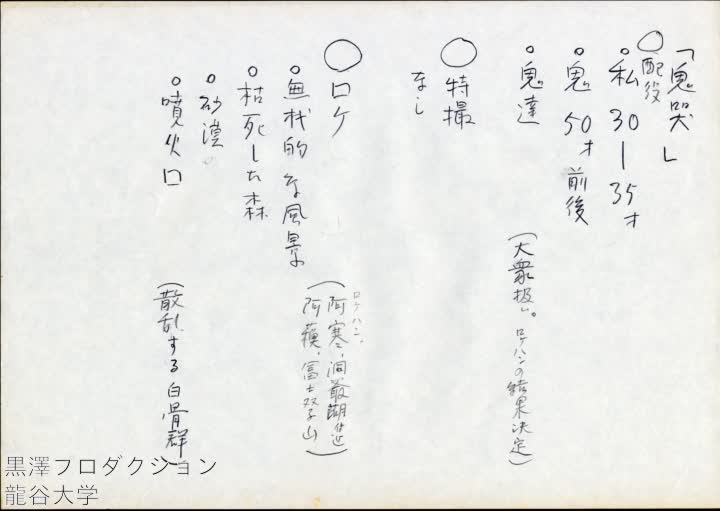 「鬼哭」
○配役
○私 30―35才
○鬼 50才前後
○鬼達
(大衆扱い。ロケハンの結果決定)
○特撮
なし
○ロケ
ロケハン、
(阿寒、洞爺湖附近
阿蘇、富士双子山)
○無材的な風景
○枯死した森
○砂漠
○噴火口
(散乱する白骨群)
黒澤プロダクション
龍谷大学